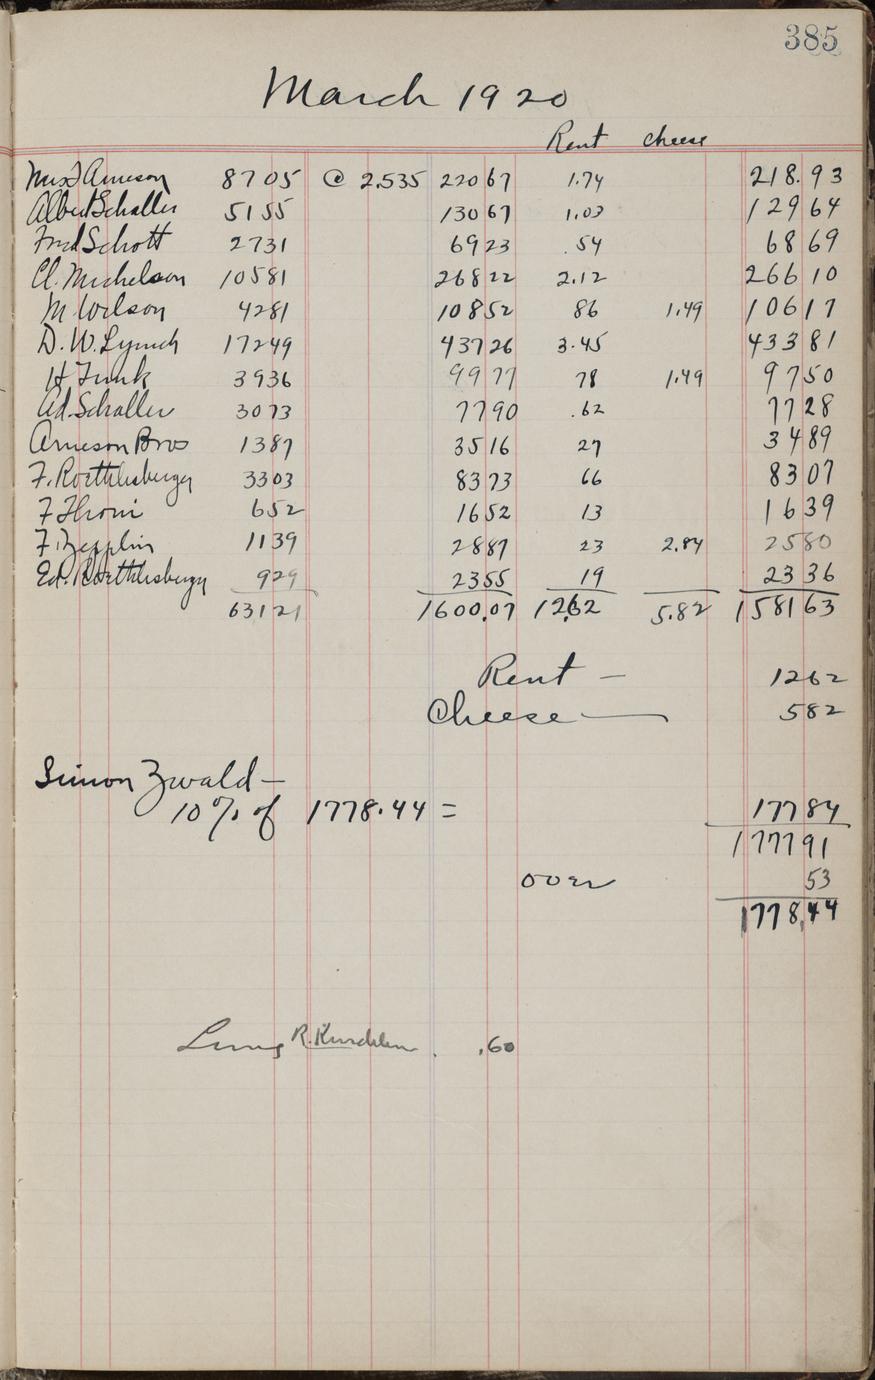 385
March 1920
Rent cheese
Mrs J Arneson 8705 @ 2.535 220 67 1.74 218.93
Albert Schaller 5155 130 67 1.03 129 64
Fred Schott 2731 69 23 .54 68 69
Cl. Michelson 10581 268 22 2.12 266 10
M. Wilson 4281 108 52 86 1.49 106 17
D. W. Lynch 17249 437 26 3.45 433 81
H. Funk 3936 99 77 78 1.49 97 50
Ad. Schaller 3073 77 90 .62 77 28
Arneson Bros 1387 35 16 27 34 89
F. Roethlisberger 3303 83 73 66 83 07
F Thoni 652 16 52 13 16 39
F. Zepplin 1139 28 87 23 2.84 25 80
Ed. Roethlisberger 929 23 55 19 23 36
63121 1600.07 12.62 5.82 1581 63
Rent — 12 62
Cheese — 5 82
Simon Zwald —
10% of 1778.44 = 177 84
1777 91
over 53
1778.44
R. .60